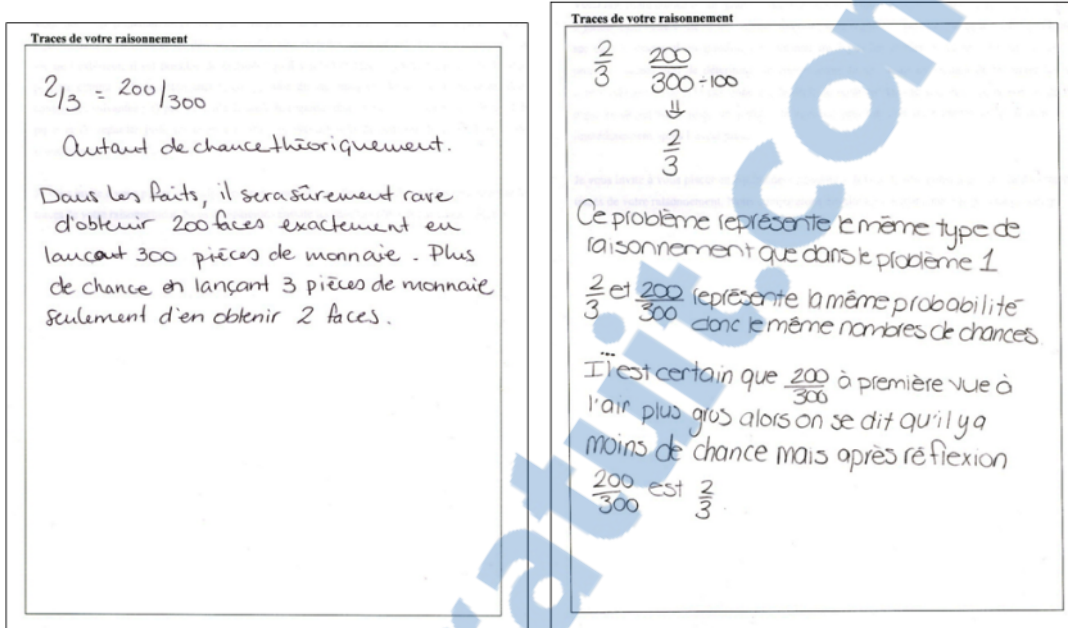 Traces de votre raisonnement
2/3 = 200/300
Autant de chance théoriquement.
Dans les faits, il sera sûrement rare
d'obtenir 200 faces exactement en
lançant 300 pièces de monnaie. Plus
de chance en lançant 3 pièces de monnaie
seulement d'en obtenir 2 faces.
Traces de votre raisonnement
2/3 200/300 ÷100
⇓
2/3
Ce problème représente le même type de
raisonnement que dans le problème 1
2/3 et 200/300 représente la même probabilité
donc le même nombres de chances.
...
Il est certain que 200/300 à première vue à
l'air plus gros alors on se dit qu'il y a
moins de chance mais après réflexion
200/300 est 2/3
atuit.con